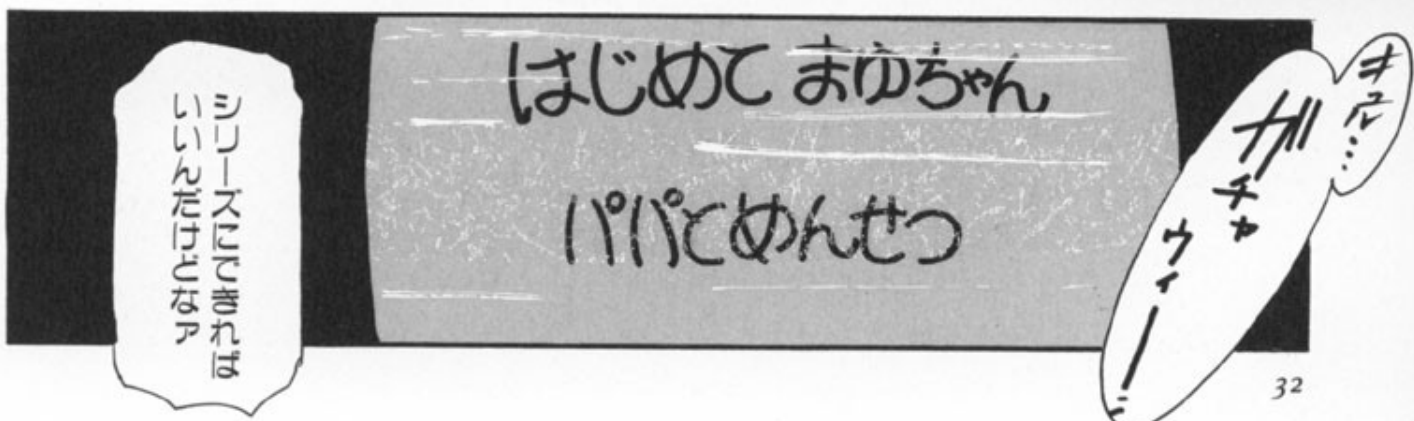 キュル…
ガチャ
ウィーー
はじめて まゆちゃん
パパとめんせつ
シリーズにできれば
いいんだけどなァ
32